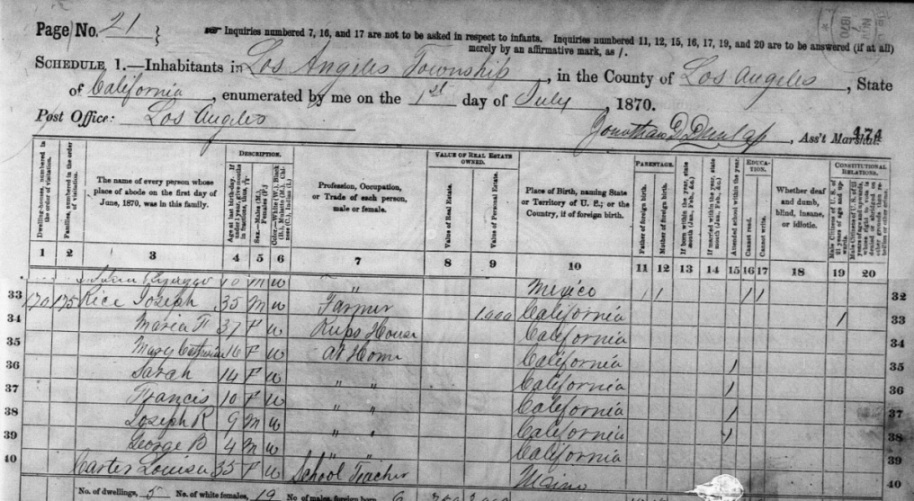 Page No. 21
☞ Inquiries numbered 7, 16, and 17 are not to be asked in respect to infants. Inquiries numbered 11, 12, 15, 16, 17, 19, and 20 are to be answered (if at all)
merely by an affirmative mark, as /.
SCHEDULE 1.—Inhabitants in Los Angeles Township, in the County of Los Angeles, State
of California, enumerated by me on the 1st day of July, 1870.
Post Office: Los Angeles
Jonathan D. Dunlap, Ass't Marshal.
474
DESCRIPTION.
VALUE OF REAL ESTATE OWNED.
PARENTAGE.
EDUCATION.
CONSTITUTIONAL RELATIONS.
Dwelling-houses, numbered in the order of visitation.
Families, numbered in the order of visitation.
The name of every person whose place of abode on the first day of June, 1870, was in this family.
Sex.—Males (M.), Females (F.)
Profession, Occupation, or Trade of each person, male or female.
Value of Real Estate.
Value of Personal Estate.
Place of Birth, naming State or Territory of U. S.; or the Country, if of foreign birth.
Father of foreign birth.
Mother of foreign birth.
If born within the year, state month (Jan., Feb., &c.)
If married within the year, state month (Jan., Feb., &c.)
Attended school within the year.
Cannot read.
Cannot write.
Whether deaf and dumb, blind, insane, or idiotic.
1 2 3 4 5 6 7 8 9 10 11 12 13 14 15 16 17 18 19 20
M W " Mexico / / / / 32
33 170 175 Rice Joseph 35 M W Farmer 1,000 California / 33
34 Maria 37 F W Keeps House California
35 Mary 16 F W At Home California / 35
36 Sarah 14 F W " " California /
37 Francis 10 F W " " California / 37
38 Joseph R 9 M W " " California / 38
39 George D 4 M W California 39
40 Carter Louisa 35 F W School Teacher Maine 40
No. of dwellings, 5 No. of white females, 19 No. of males, foreign born, 6